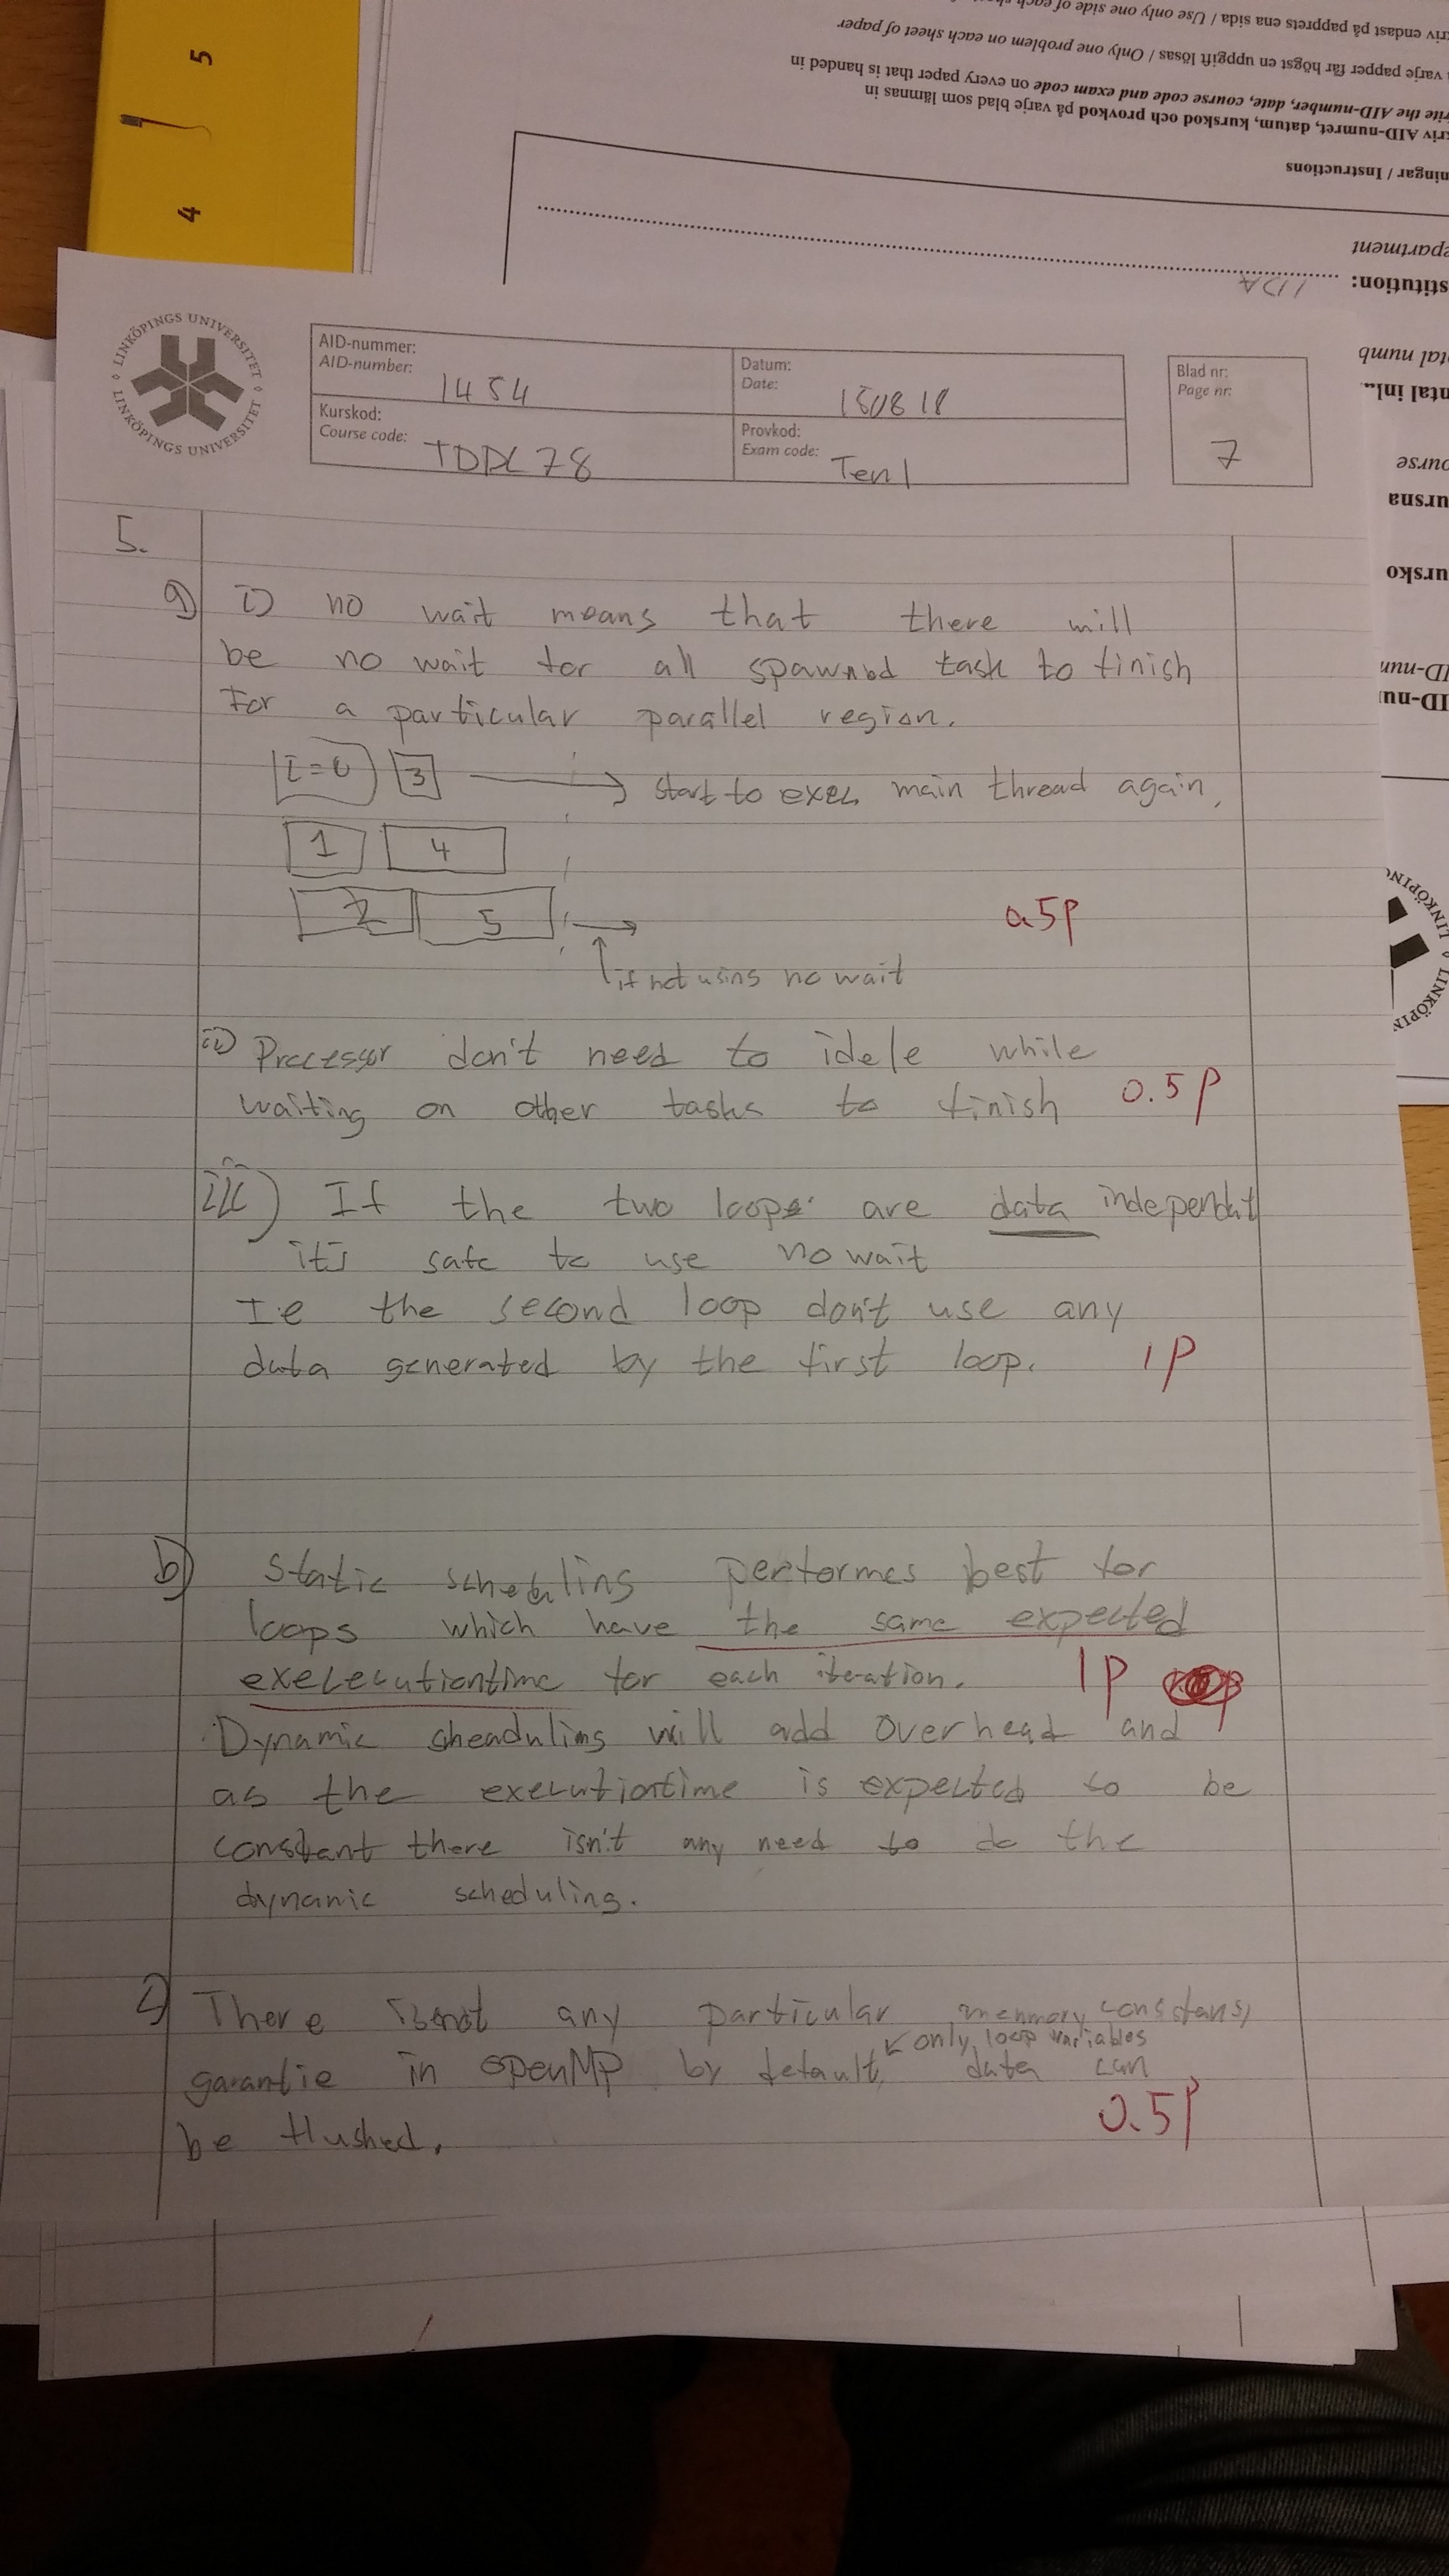 5
4
riv endast på papprets ena sida / Use only one side of each
varje papper får högst en uppgift lösas / Only one problem on each sheet of paper
rite the AID-number, date, course code and exam code on every paper that is handed in
riv AID-numret, datum, kurskod och provkod på varje blad som lämnas in
ningar / Instructions
epartment
stitution:
IDA
tal numb
ntal inl..
ourse
ursna
ursko
ID-num
ID-nur
LINKÖPINGS UNIVERSITET
LINKÖPINGS UNIVERSITET
AID-nummer:
AID-number: 1454
Datum:
Date: 150818
Blad nr:
Page nr: 7
Kurskod:
Course code: TDDC78
Provkod:
Exam code: Ten1
5.
a) i) no wait means that there will
be no wait for all spawned task to finish
For a particular parallel region.
i=0 3 start to exec main thread again,
1 4
2 5
0.5p
if not using no wait
ii) Processor don't need to idele while
waiting on other tasks to finish 0.5p
iii) If the two loops are data independat
its safe to use nowait
I.e the second loop don't use any
data generated by the first loop. 1p
b) Static scheduling performes best for
loops which have the same expected
exelecutiontime for each iteration. 1p
Dynamic sheaduling will add overhead and
as the executiontime is expected to be
constant there isn't any need to do the
dynamic scheduling.
c) There isnot any particular memmory constans,
garantie in openMP by default, only loop variables data can
be flushed. 0.5p